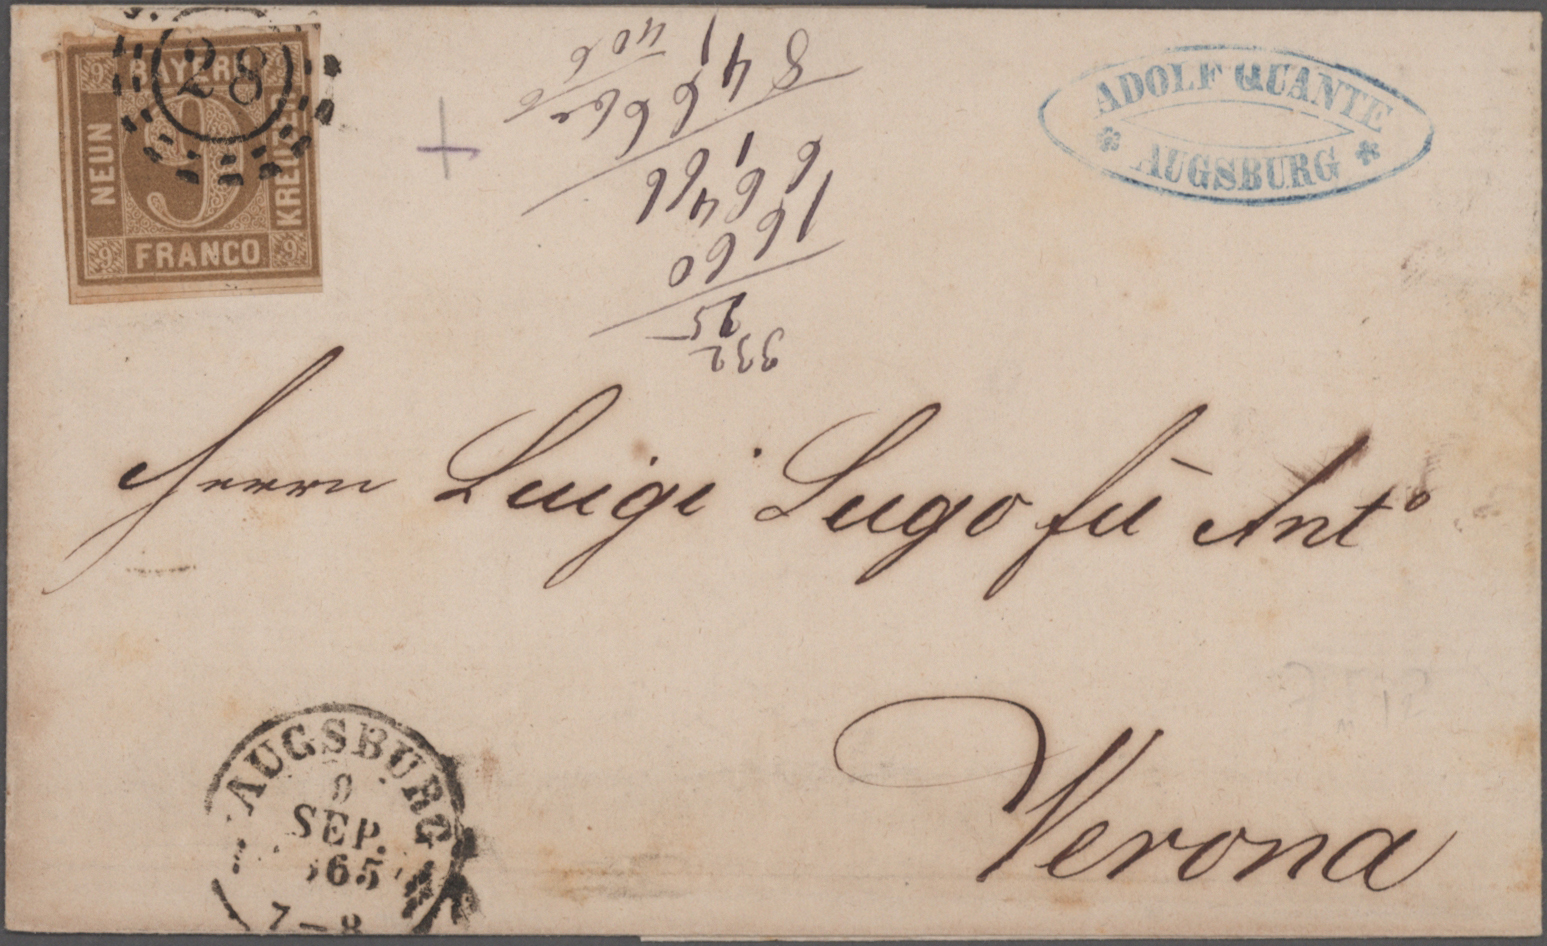 BAYERN
28
9 9
NEUN
9
KREUZER
9 FRANCO 9
ADOLF QUANTE
AUGSBURG
Herrn Luigi Lugo fū Antº
Verona
AUGSBURG
9
SEP.
865
7-8
332